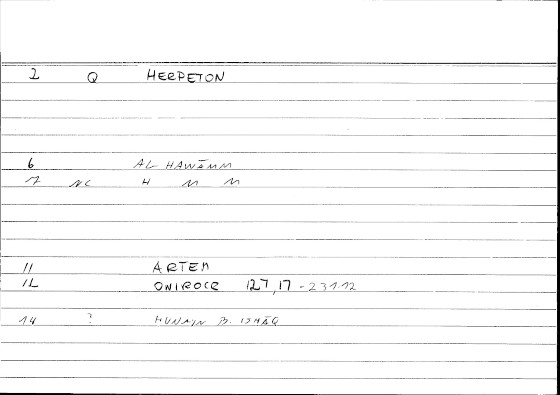 2 Q HERPETON
6 AL HAWĀMM
7 NC H M M
11 ARTEM
12 ONIROCR 127,17 - 231.12
14 ? HUNAYN B. ISHĀQ